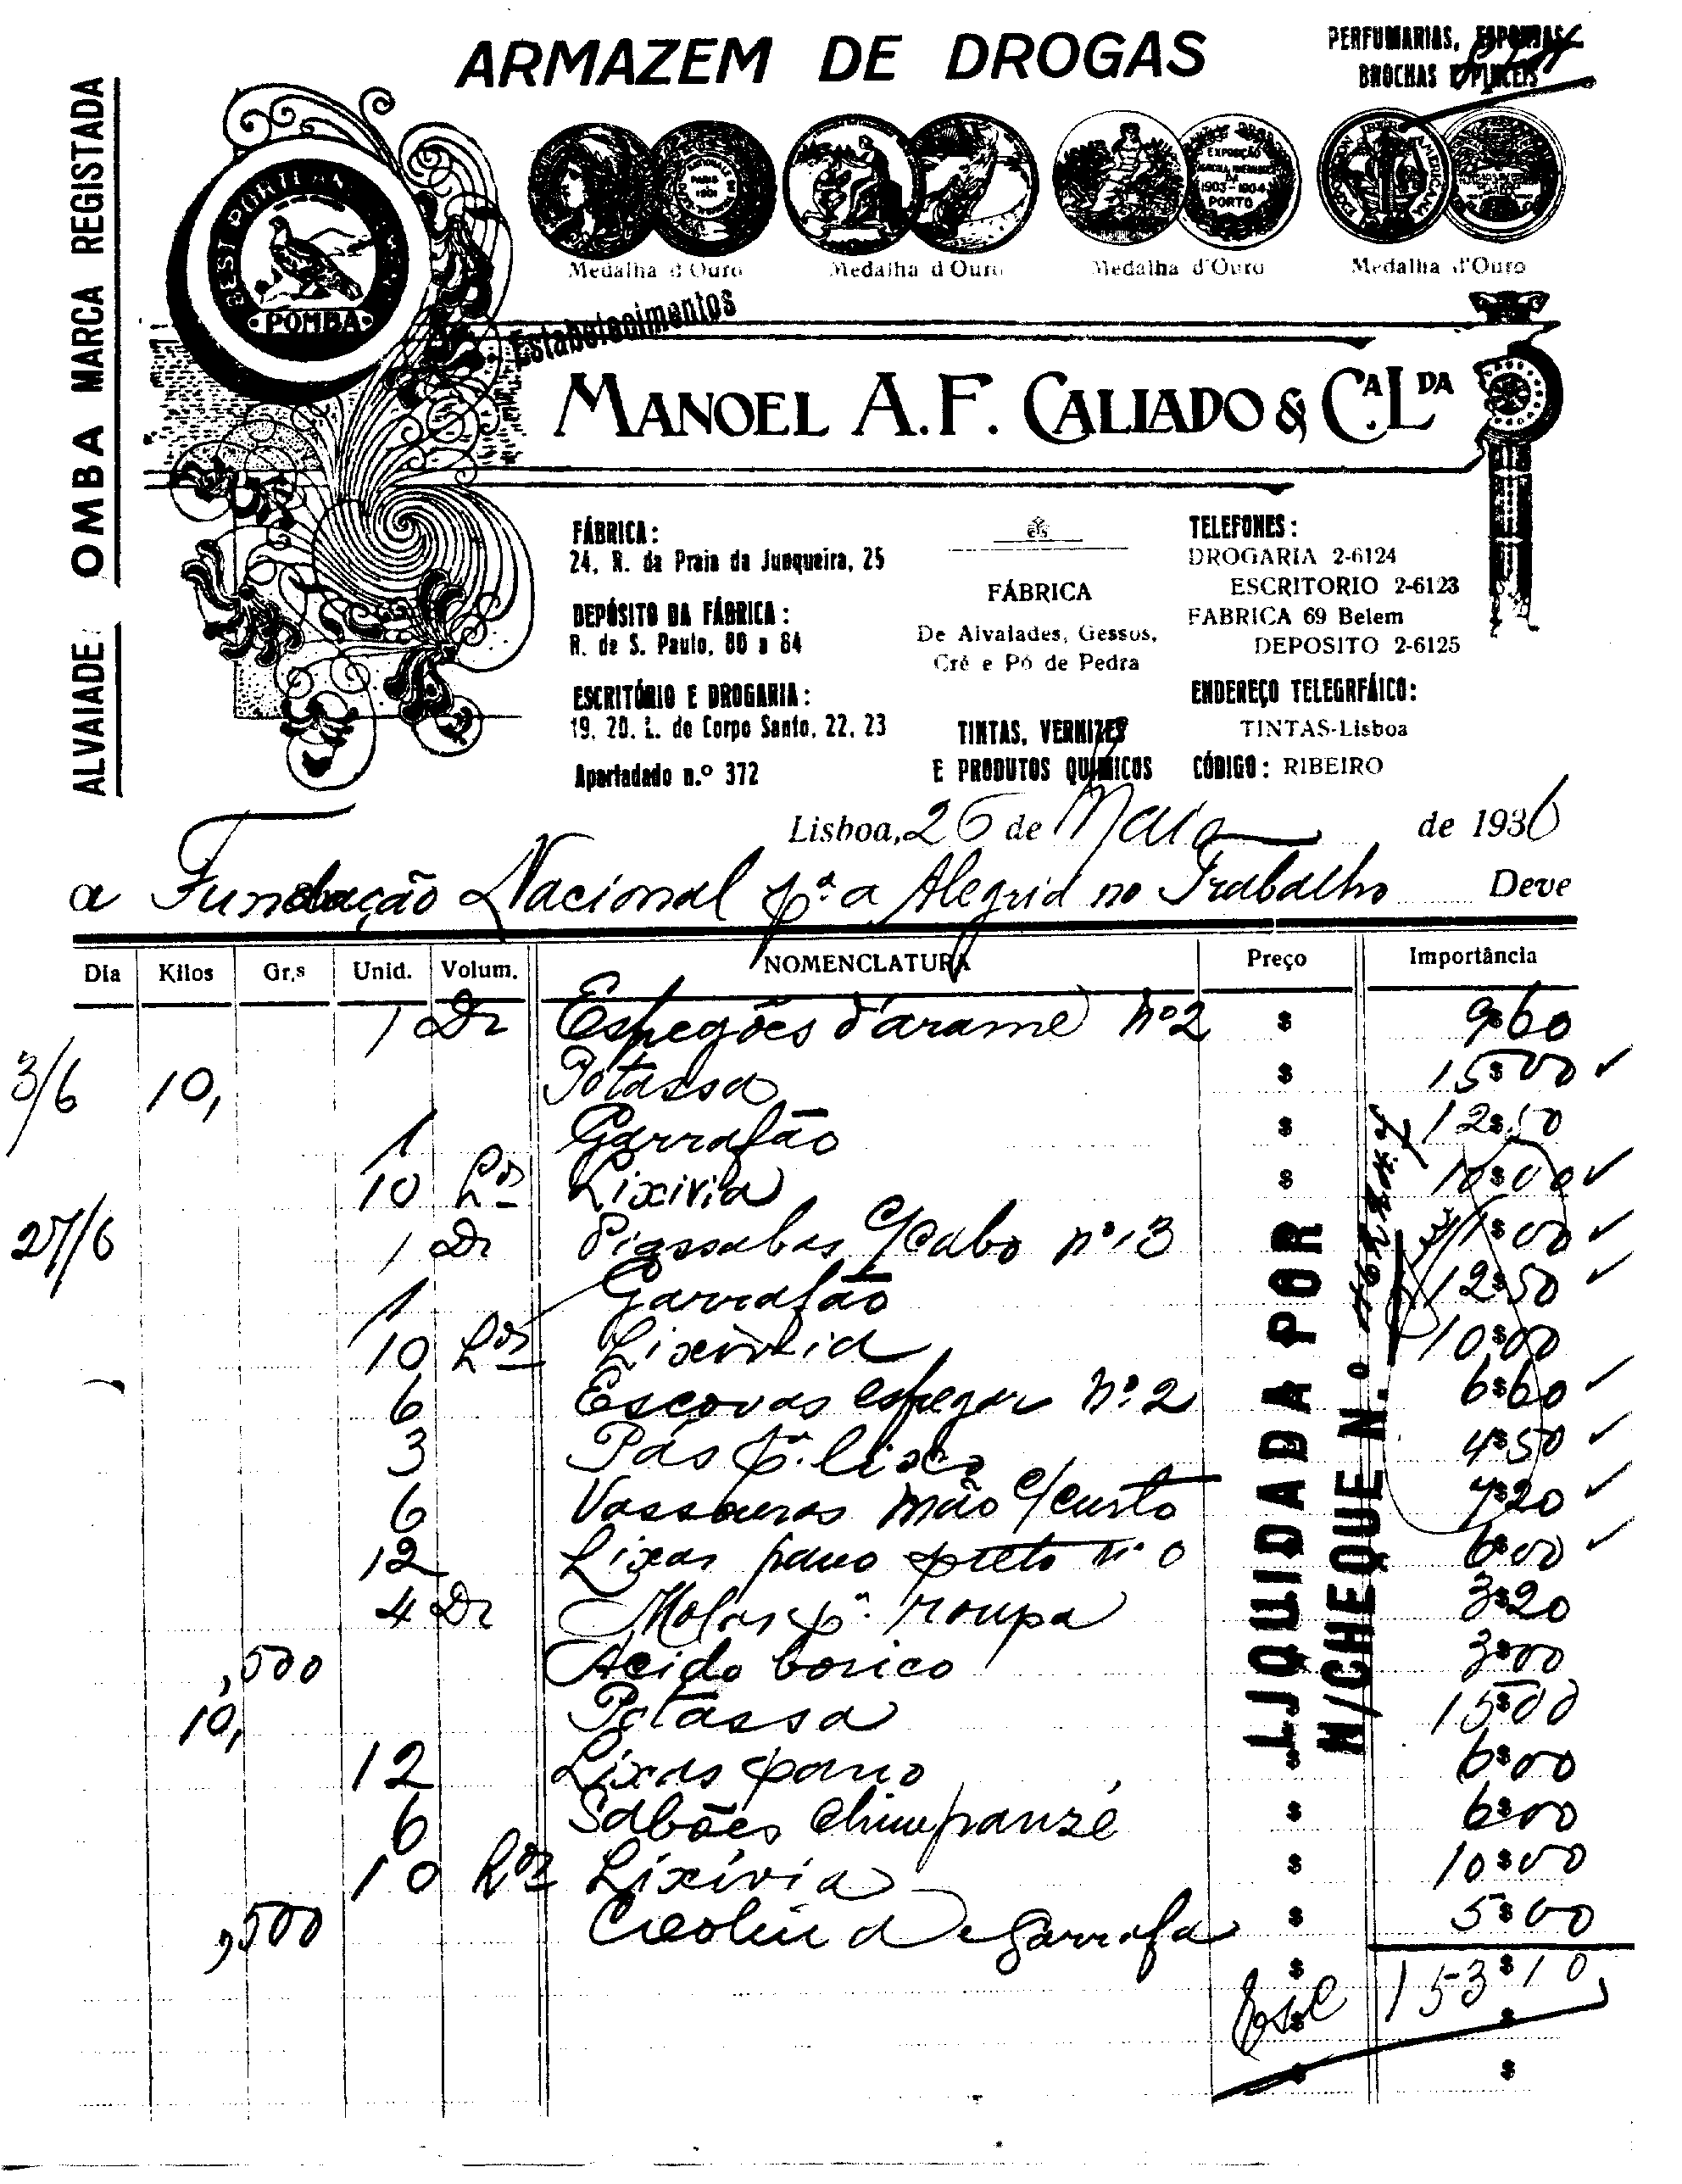 ARMAZEM DE DROGAS
PERFUMARIAS, ESPONJAS
BROCHAS E PINCEIS
ALVAIADE OMBA MARCA REGISTADA
BEST PORTLAND
POMBA
PARIS
EXPOSIÇÃO
1903-1904
PORTO
Medalha d'Ouro
Medalha d'Ouro
Medalha d'Ouro
Medalha d'Ouro
Estabelecimentos
MANOEL A. F. CALLADO & C.A LDA
FÁBRICA:
24, R. da Praia da Junqueira, 25
DEPÓSITO DA FÁBRICA:
R. de S. Paulo, 80 a 84
ESCRITÓRIO E DROGARIA:
19, 20, L. do Corpo Santo, 22, 23
Apartadado n.º 372
FÁBRICA
De Alvaiades, Gessos,
Cré e Pó de Pedra
TINTAS, VERNIZES
E PRODUTOS QUIMICOS
TELEFONES:
DROGARIA 2-6124
ESCRITORIO 2-6123
FABRICA 69 Belem
DEPOSITO 2-6125
ENDEREÇO TELEGRFÁICO:
TINTAS-Lisboa
CÓDIGO: RIBEIRO
Lisboa, 26 de Maio de 1936
a Fundação Nacional p.ª a Alegria no Trabalho Deve
Dia Kilos Gr.s Unid. Volum. NOMENCLATURA Preço Importância
1 Dz Esfregões d'arame nº 2 $ 9$60
3/6 10, Potassa $ 15$00
1 Garrafão $ 12$50
10 Los Lixivia $ 10$00
27/6 1 Dz Piassabas c/cabo nº 13 11$00
1 Garrafão 12$50
10 Los Lixivia 10$00
6 Escovas esfregar nº 2 6$60
3 Pás p.ª lixo 4$50
6 Vassouras mão c/curto 7$20
12 Lixas pano preto nº 0 6$00
4 Dz Molas p.ª roupa 3$20
,500 Acido borico 3$00
10, Potassa 15$00
12 Lixas pano $ 6$00
6 Sabões chimpanzé $ 6$00
10 Los Lixívia $ 10$00
,500 Creolina e garrafa $ 5$00
Esc 153$10
LIQUIDADA POR
N/CHEQUE N.º